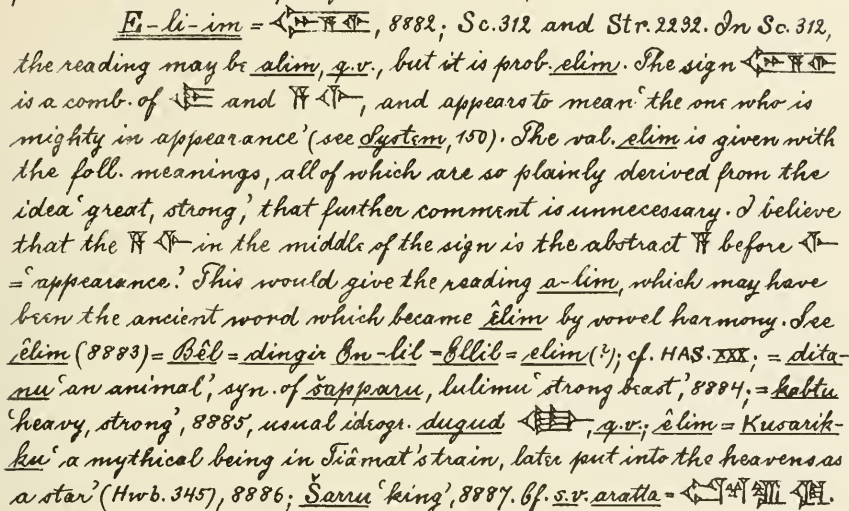 E-li-im = , 8882; Sc. 312 and Str. 2232. In Sc. 312,
the reading may be alim, q.v., but it is prob. elim. The sign
is a comb. of and , and appears to mean ‘the one who is
mighty in appearance’ (see System, 150). The val. elim is given with
the foll. meanings, all of which are so plainly derived from the
idea ‘great, strong,’ that further comment is unnecessary. I believe
that the in the middle of the sign is the abstract before
= ‘appearance.’ This would give the reading a-lim, which may have
been the ancient word which became êlim by vowel harmony. See
êlim (8883) = Bêl = dingir En-lil = Ellil = elim (?); cf. HAS. XXX; = dita-
nu ‘an animal’, syn. of šapparu, lulimu ‘strong beast,’ 8884; = kabtu
‘heavy, strong’, 8885, usual ideogr. dugud , q.v.; êlim = Kusarik-
ku ‘a mythical being in Tiâmat's train, later put into the heavens as
a star’ (Hwb. 345), 8886; Šarru ‘king’, 8887. Cf. s.v. aratta = .